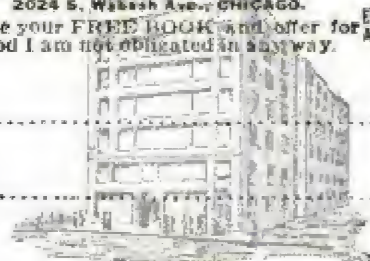 2024 S. Wabash Ave., CHICAGO.
e your FREE BOOK and offer for
d I am not obligated in any way.